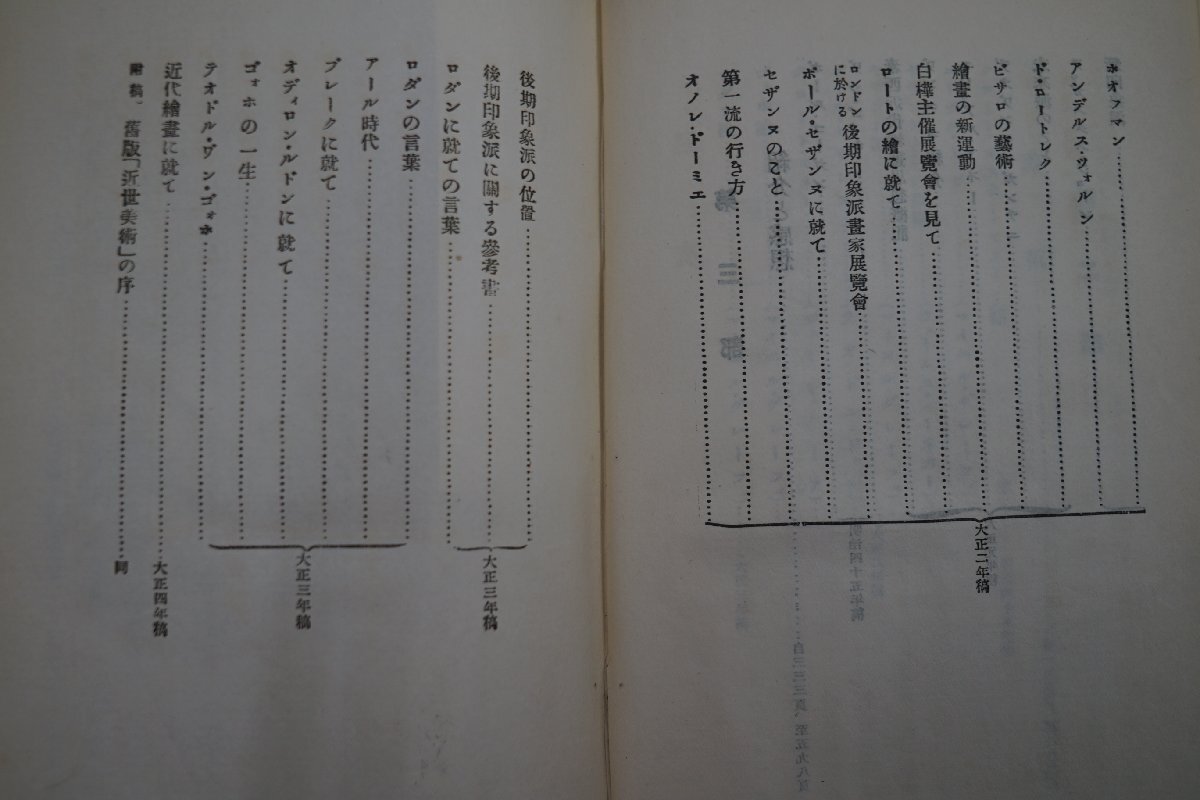 ホオフマン
アンデルス・ツォルン
ド・ロートレク
ピサロの藝術
繪畫の新運動
白樺主催展覽會を見て
ロートの繪に就て
ロンドンに於ける後期印象派畫家展覽會
ポール・セザンヌに就て
セザンヌのこと
第一流の行き方
オノレ・ドーミエ
大正二年稿
後期印象派の位置
後期印象派に關する參考書
ロダンに就ての言葉
大正三年稿
ロダンの言葉
アール時代
ブレークに就て
オディロン・ルドンに就て
ゴォホの一生
テオドル・ヴン・ゴォホ
大正三年稿
近代繪畫に就て
大正四年稿
附稿、舊版「近世美術」の序
同